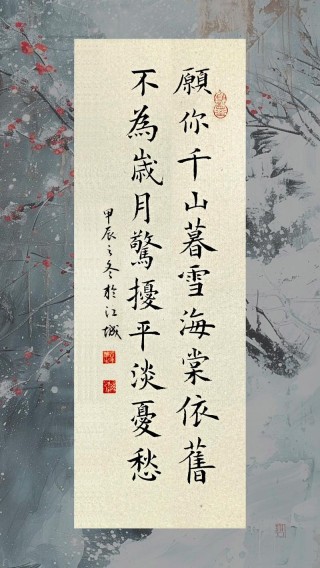 願你千山暮雪海棠依舊
不為歲月驚擾平淡憂愁
甲辰之冬於江城